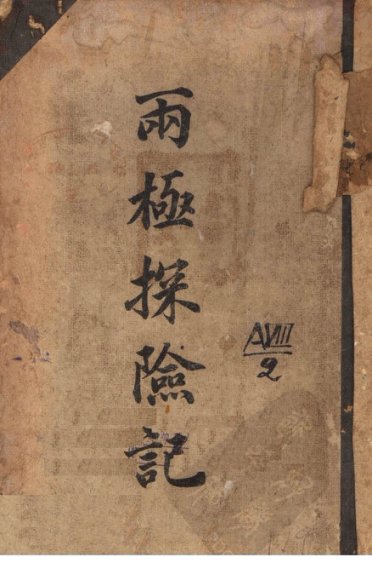 兩極探險記
AVIII
2